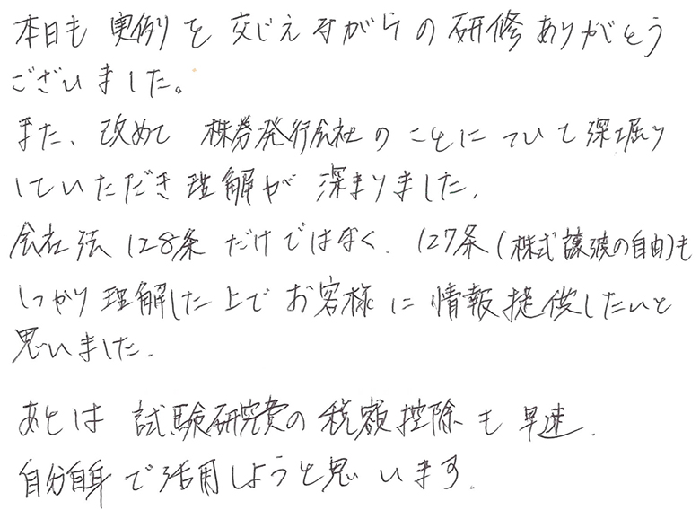 本日も 実例を 交じえながらの 研修ありがとう
ございました。
また、改めて 株券発行会社のことについて深堀り
していただき理解が 深まりました。
会社法128条 だけではなく、127条(株式譲渡の自由)も
しっかり理解した上でお客様に情報提供したいと
思いました。
あとは 試験研究費の税額控除も早速、
自分自身で活用しようと思います。